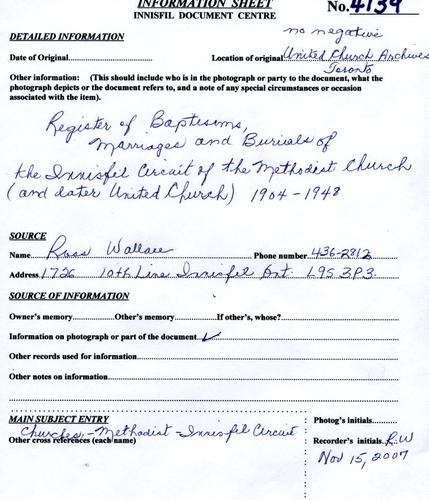 INFORMATION SHEET
INNISFIL DOCUMENT CENTRE
No. 4139
no negative
DETAILED INFORMATION
Date of Original
Location of original United Church Archives
Toronto
Other information: (This should include who is in the photograph or party to the document, what the
photograph depicts or the document refers to, and a note of any special circumstances or occasion
associated with the item).
Register of Baptisms,
Marriages and Burials of
the Innisfil Circuit of the Methodist Church
(and later United Church) 1904-1948
SOURCE
Name Ross Wallace Phone number 436-2812
Address 1726 10th Line Innisfil Ont. L9S 3P3
SOURCE OF INFORMATION
Owner's memory Other's memory If other's, whose?
Information on photograph or part of the document ✓
Other records used for information
Other notes on information
MAIN SUBJECT ENTRY
Photog's initials
Churches - Methodist - Innisfil Circuit
Other cross references (each name)
Recorder's initials R.W
Nov 15, 2007